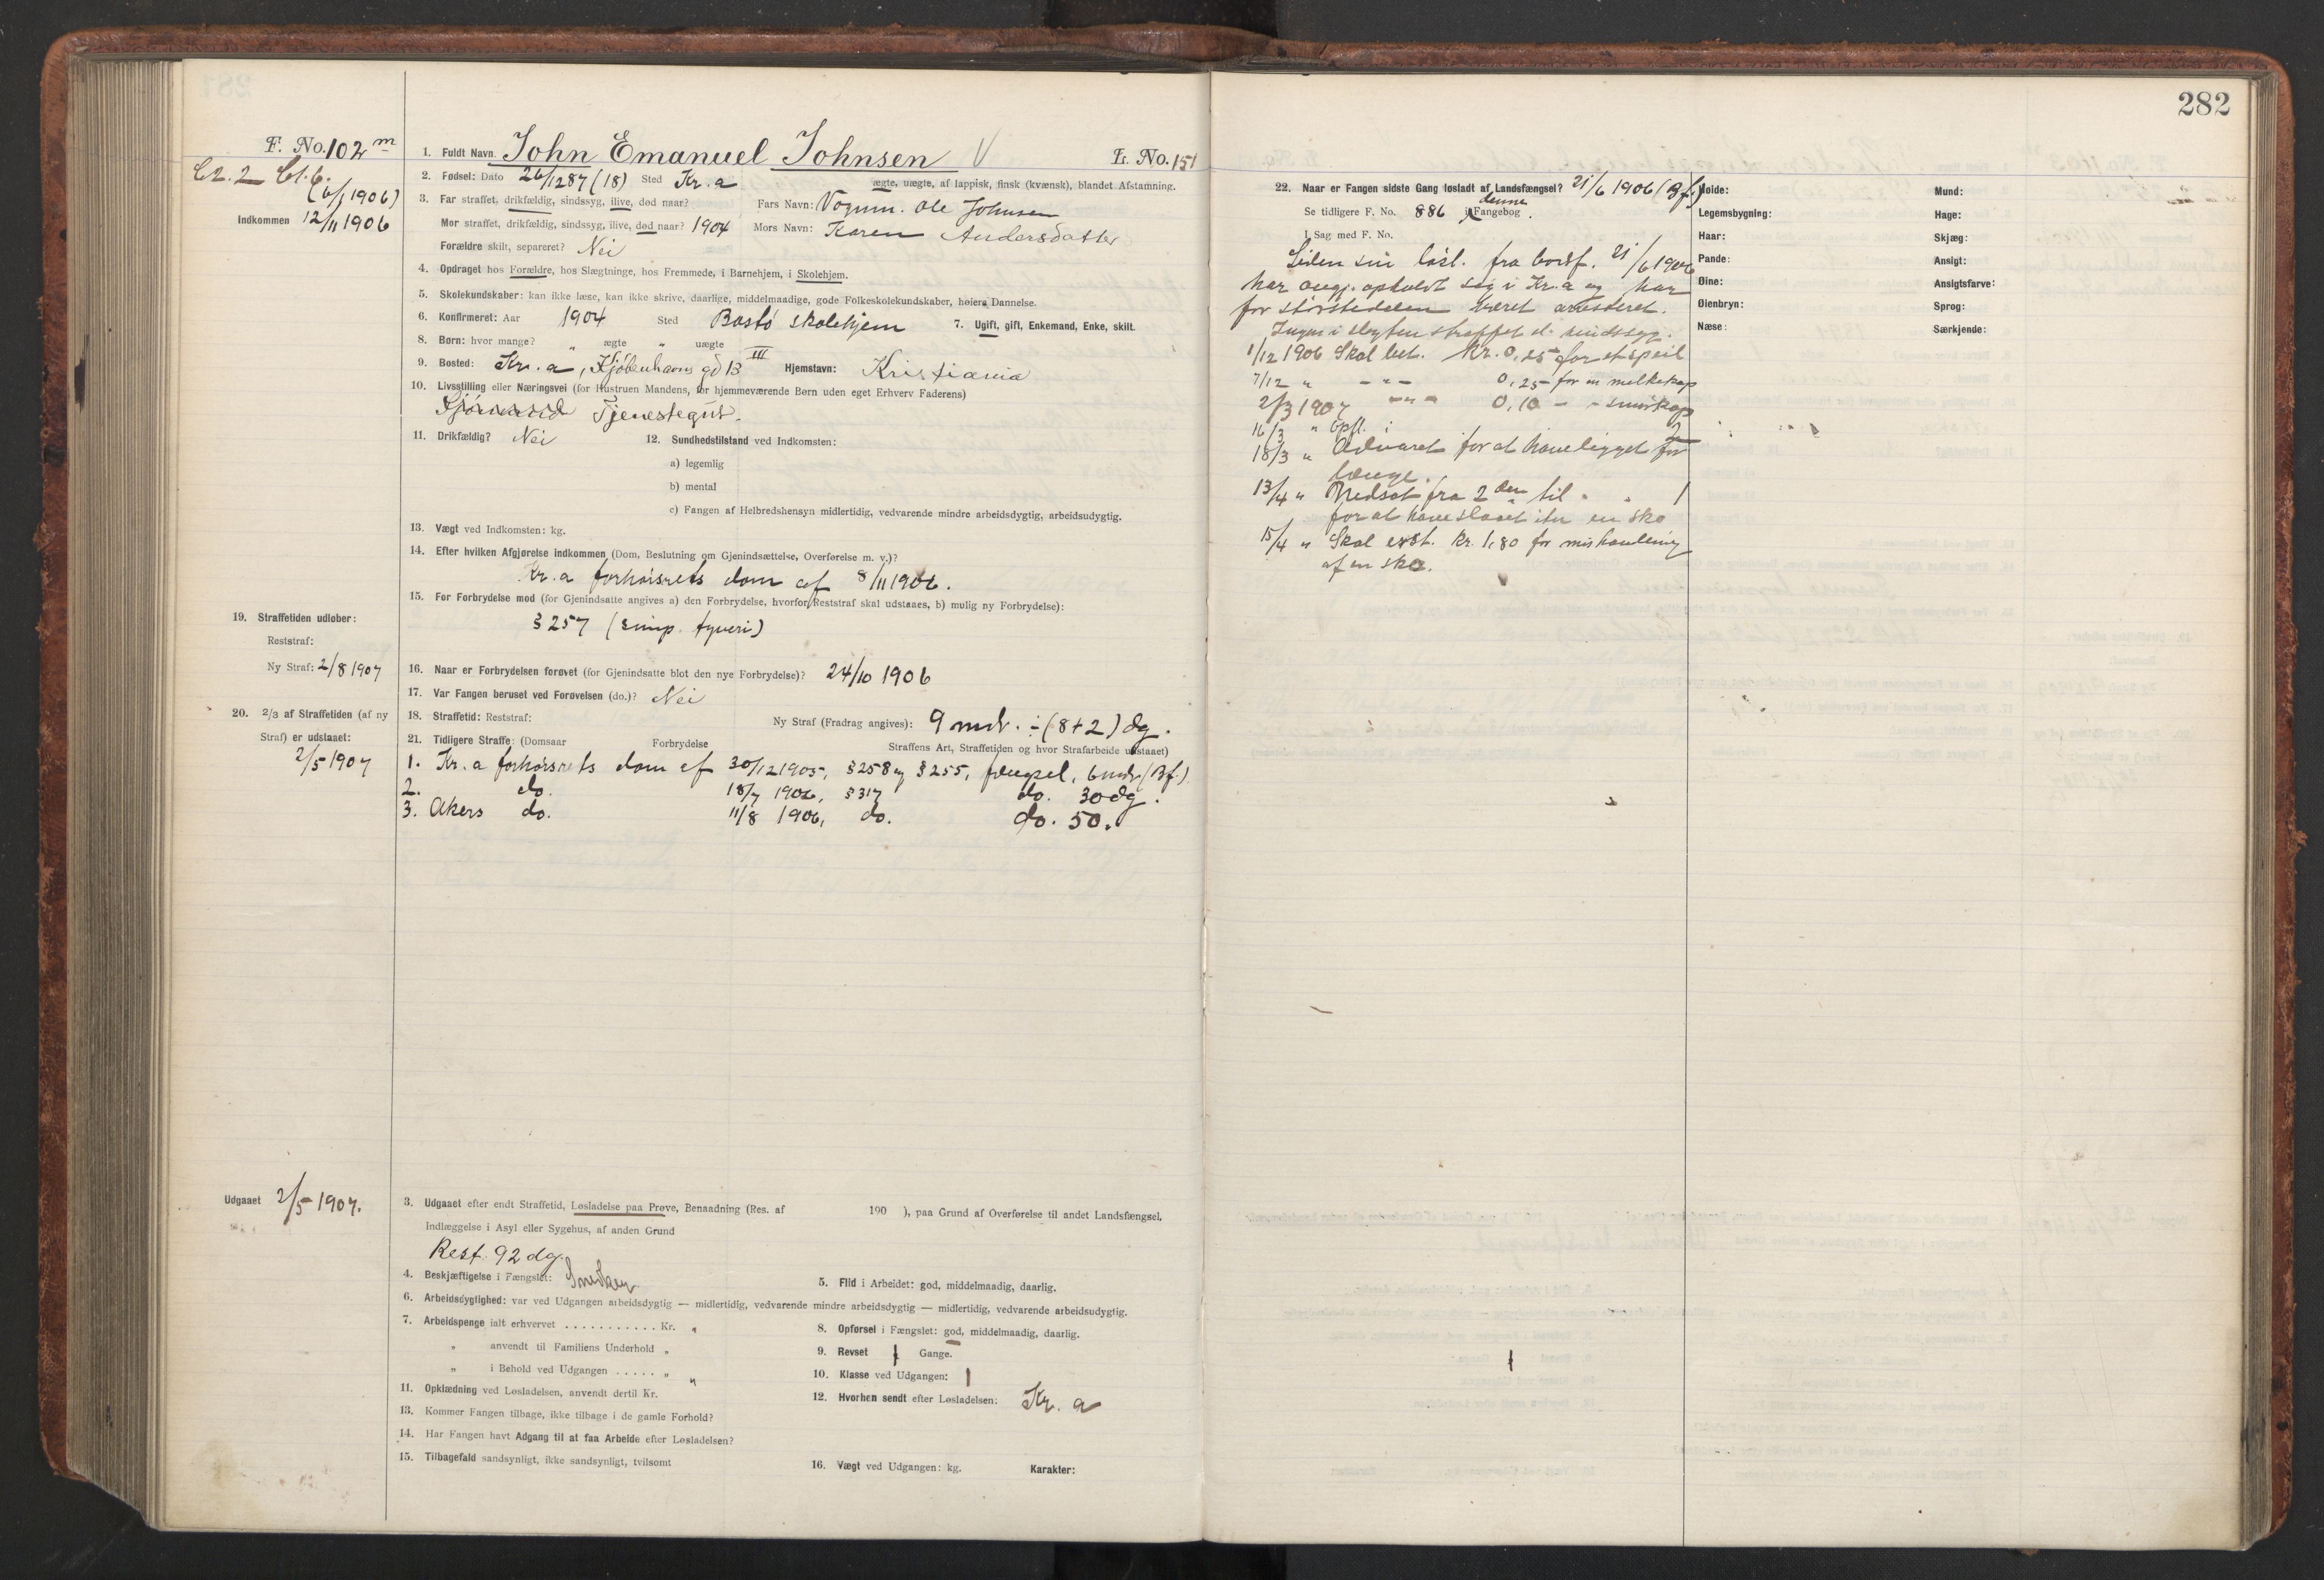 282
F. No. 102 m
Cr. 2 Cl. 6.
(6/1 1906)
Indkommen 12/11 1906
1. Fuldt Navn. John Emanuel Johnsen V L. No. 151
2. Fødsel: Dato 26/12 87 (18) Sted Kr.a ægte, uægte, af lappisk, finsk (kvænsk), blandet Afstamning.
3. Far straffet, drikfældig, sindssyg, ilive, død naar? Fars Navn: Vognm. Ole Johnsen
Mor straffet, drikfældig, sindssyg, ilive, død naar? 1904 Mors Navn: Karen Andersdatter
Forældre skilt, separeret? Nei
4. Opdraget hos Forældre, hos Slægtninge, hos Fremmede, i Barnehjem, i Skolehjem.
5. Skolekundskaber: kan ikke læse, kan ikke skrive, daarlige, middelmaadige, gode Folkeskolekundskaber, høiere Dannelse.
6. Konfirmeret: Aar 1904 Sted Bastø skolehjem 7. Ugift, gift, Enkemand, Enke, skilt.
8. Børn: hvor mange? " ægte " uægte
9. Bosted: Kr.a, Kjøbenhavns gd 13 III Hjemstavn: Kristiania
10. Livsstilling eller Næringsvei (for Hustruen Mandens, for hjemmeværende Børn uden eget Erhverv Faderens)
Tjenestegut.
11. Drikfældig? Nei 12. Sundhedstilstand ved Indkomsten:
a) legemlig
b) mental
c) Fangen af Helbredshensyn midlertidig, vedvarende mindre arbeidsdygtig, arbeidsudygtig.
13. Vægt ved Indkomsten: kg.
14. Efter hvilken Afgjørelse indkommen (Dom, Beslutning om Gjenindsættelse, Overførelse m. v.)?
Kr.a forhørsrets dom af 8/11 1906.
15. For Forbrydelse mod (for Gjenindsatte angives a) den Forbrydelse, hvorfor Reststraf skal udstaaes, b) mulig ny Forbrydelse):
§ 257 (simp. tyveri)
19. Straffetiden udløber:
Reststraf:
Ny Straf: 2/8 1907
16. Naar er Forbrydelsen forøvet (for Gjenindsatte blot den nye Forbrydelse)? 24/10 1906
17. Var Fangen beruset ved Forøvelsen (do.)? Nei
20. 2/3 af Straffetiden (af ny
Straf) er udstaaet:
2/5 1907
18. Straffetid: Reststraf: Ny Straf (Fradrag angives): 9 mdr. ÷ (8+2) dg.
21. Tidligere Straffe: (Domsaar Forbrydelse Straffens Art, Straffetiden og hvor Strafarbeide udstaaet)
1. Kr.a forhørsrets dom af 30/12 1905, § 258 og § 255, fængsel, 6 mdr (Bf.)
2. do. 18/7 1906, § 317 do. 30 dg.
3. Akers do. 11/8 1906, do. do. 50.
Udgaaet 2/5 1907.
3. Udgaaet efter endt Straffetid, Løsladelse paa Prøve, Benaadning (Res. af 190 ), paa Grund af Overførelse til andet Landsfængsel,
Indlæggelse i Asyl eller Sygehus, af anden Grund
Rest. 92 dg.
4. Beskjæftigelse i Fængslet: Snekker 5. Flid i Arbeidet: god, middelmaadig, daarlig.
6. Arbeidsdygtighed: var ved Udgangen arbeidsdygtig — midlertidig, vedvarende mindre arbeidsdygtig — midlertidig, vedvarende arbeidsudygtig.
7. Arbeidspenge ialt erhvervet ........... Kr. " 8. Opførsel i Fængslet: god, middelmaadig, daarlig.
" anvendt til Familiens Underhold " 9. Revset 1 Gange.
" i Behold ved Udgangen ..... " " 10. Klasse ved Udgangen: 1
11. Opklædning ved Løsladelsen, anvendt dertil Kr. 12. Hvorhen sendt efter Løsladelsen: Kr.a
13. Kommer Fangen tilbage, ikke tilbage i de gamle Forhold?
14. Har Fangen havt Adgang til at faa Arbeide efter Løsladelsen?
15. Tilbagefald sandsynligt, ikke sandsynligt, tvilsomt 16. Vægt ved Udgangen: kg. Karakter:
22. Naar er Fangen sidste Gang løsladt af Landsfængsel? 21/6 1906 (Bf.)
Se tidligere F. No. 886 i denne Fangebog.
I Sag med F. No.
Siden sin løsl. fra bodsf. 21/6 1906
har angj. opholdt sig i Kr.a og har
for størstedelen været arresteret.
Ingen i slegten straffet el. sindssyg.
1/12 1906 Skal bet. Kr. 0,25 for et speil
7/12 " - " - 0,25 - for en melkekop
2/3 1907 - " - 0,10 - - smørkop
16/3 " Opfl. i 2
18/3 " Advaret for at have ligget for
længe.
13/4 " Nedsat fra 2den til " " 1
for at have skaaret itu en sko
15/4 " Skal erst. Kr. 1,80 for mishandling
af en sko.
Høide:
Legemsbygning:
Haar:
Pande:
Øine:
Øienbryn:
Næse:
Mund:
Hage:
Skjæg:
Ansigt:
Ansigtsfarve:
Sprog:
Særkjende: